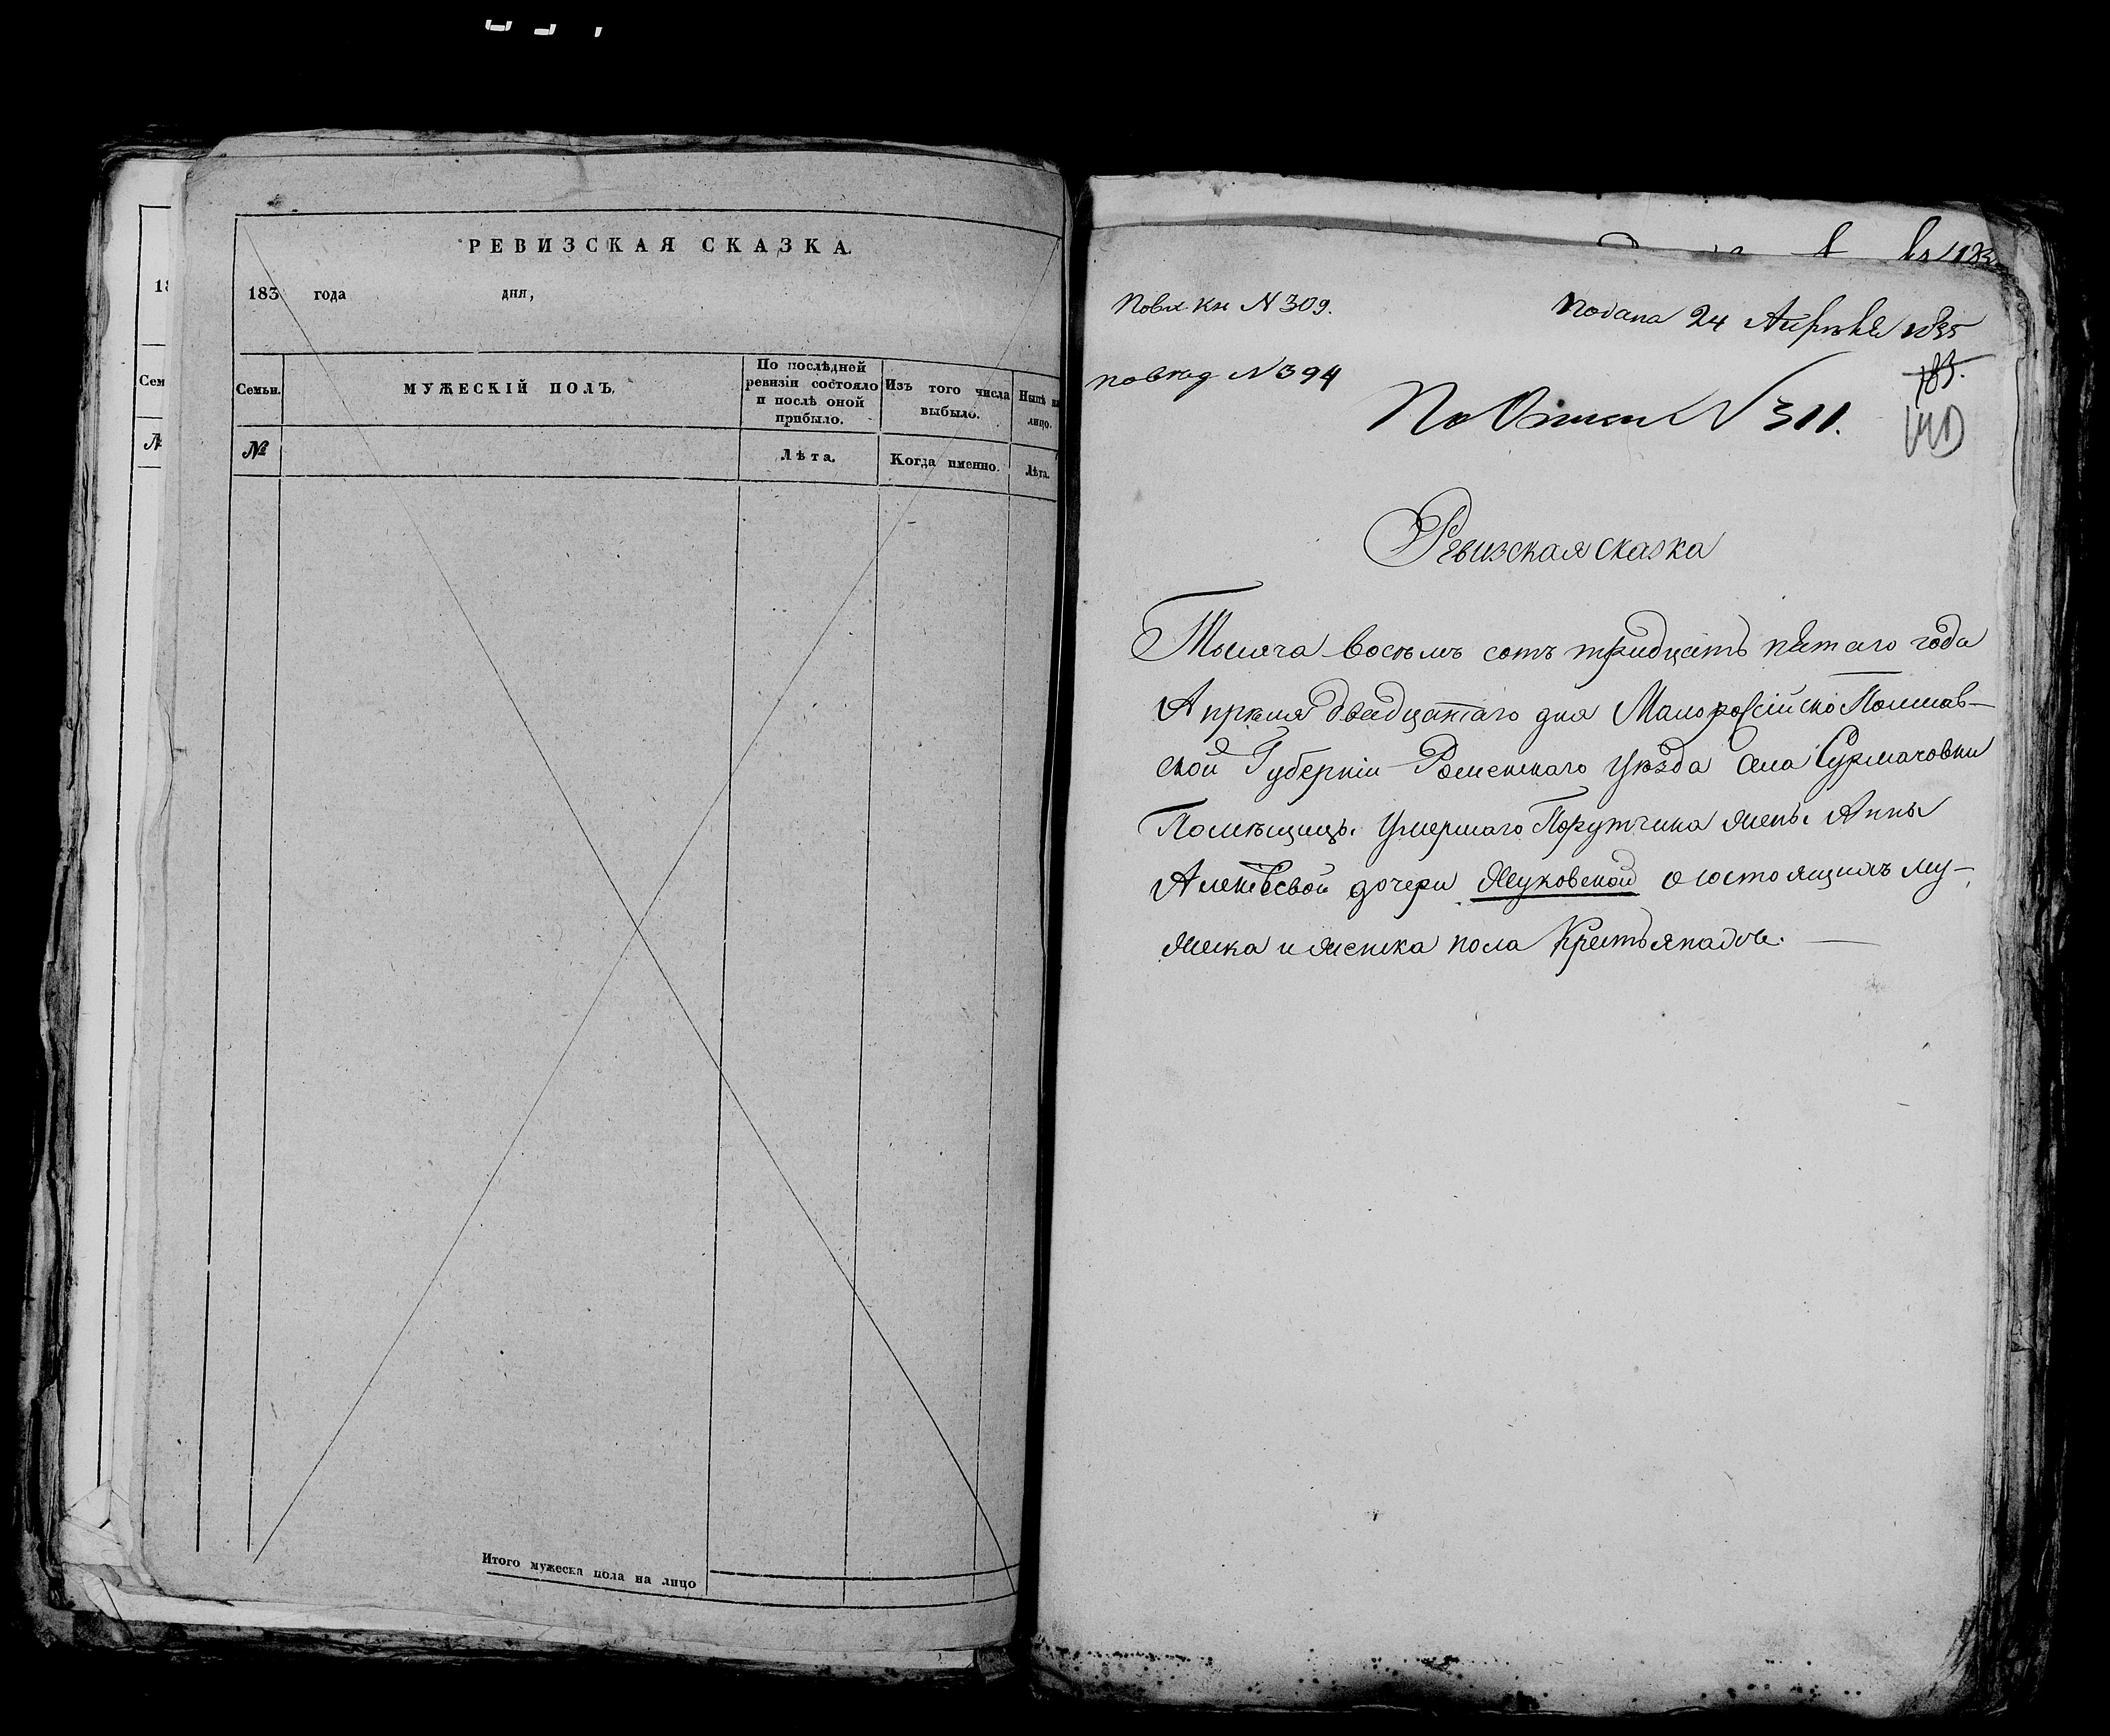 РЕВИЗСКАЯ СКАЗКА.
183 года дня,
Семьи.
МУЖЕСКІЙ ПОЛЪ.
По послѣдней ревизіи состояло и послѣ оной прибыло.
Изъ того числа выбыло.
Нынѣ на лицо.
№
Лѣта.
Когда именно.
Лѣта.
Итого мужеска пола на лицо
18
Сем
№
По вх. кн N 309.
Подана 24 Апрѣля 1835
N 394
По Описи N 311.
185.
Ревизская сказка
Тысяча восемъ сотъ тридцать пятаго года
Апрѣля двадцатаго дня Малоросійско Полтав-
ской Губерніи Роменскаго уѣзда села Сурмачовки
Помѣщицы умершаго Порутчика жены Анны
Алексѣевой дочери Жуковской о состоящихъ му-
жеска и женска пола Крестьянахъ.